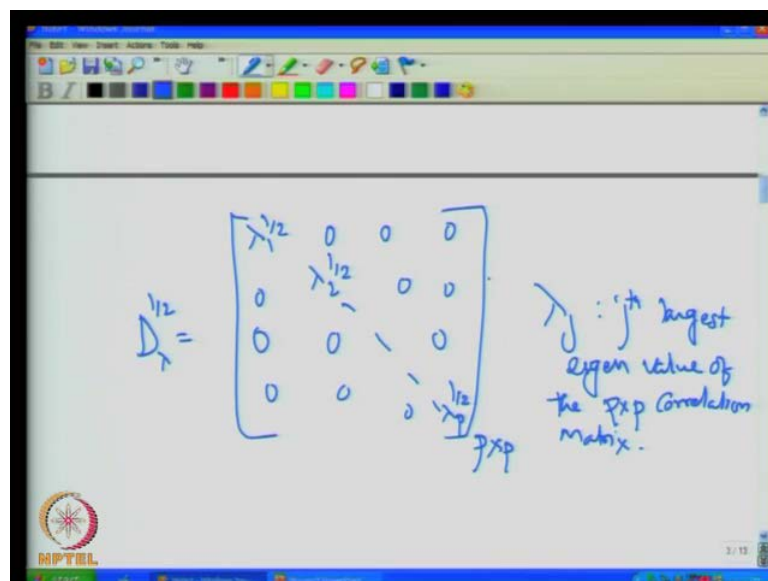 File Edit View Insert Actions Tools Help
B I
D_λ^{1/2} = [ λ_1^{1/2} 0 0 0
0 λ_2^{1/2} 0 0
0 0 \ 0
0 0 0 λ_p^{1/2} ]_{p×p}
λ_j : jth largest
eigen value of
the p×p Correlation
Matrix.
NPTEL
3 / 13